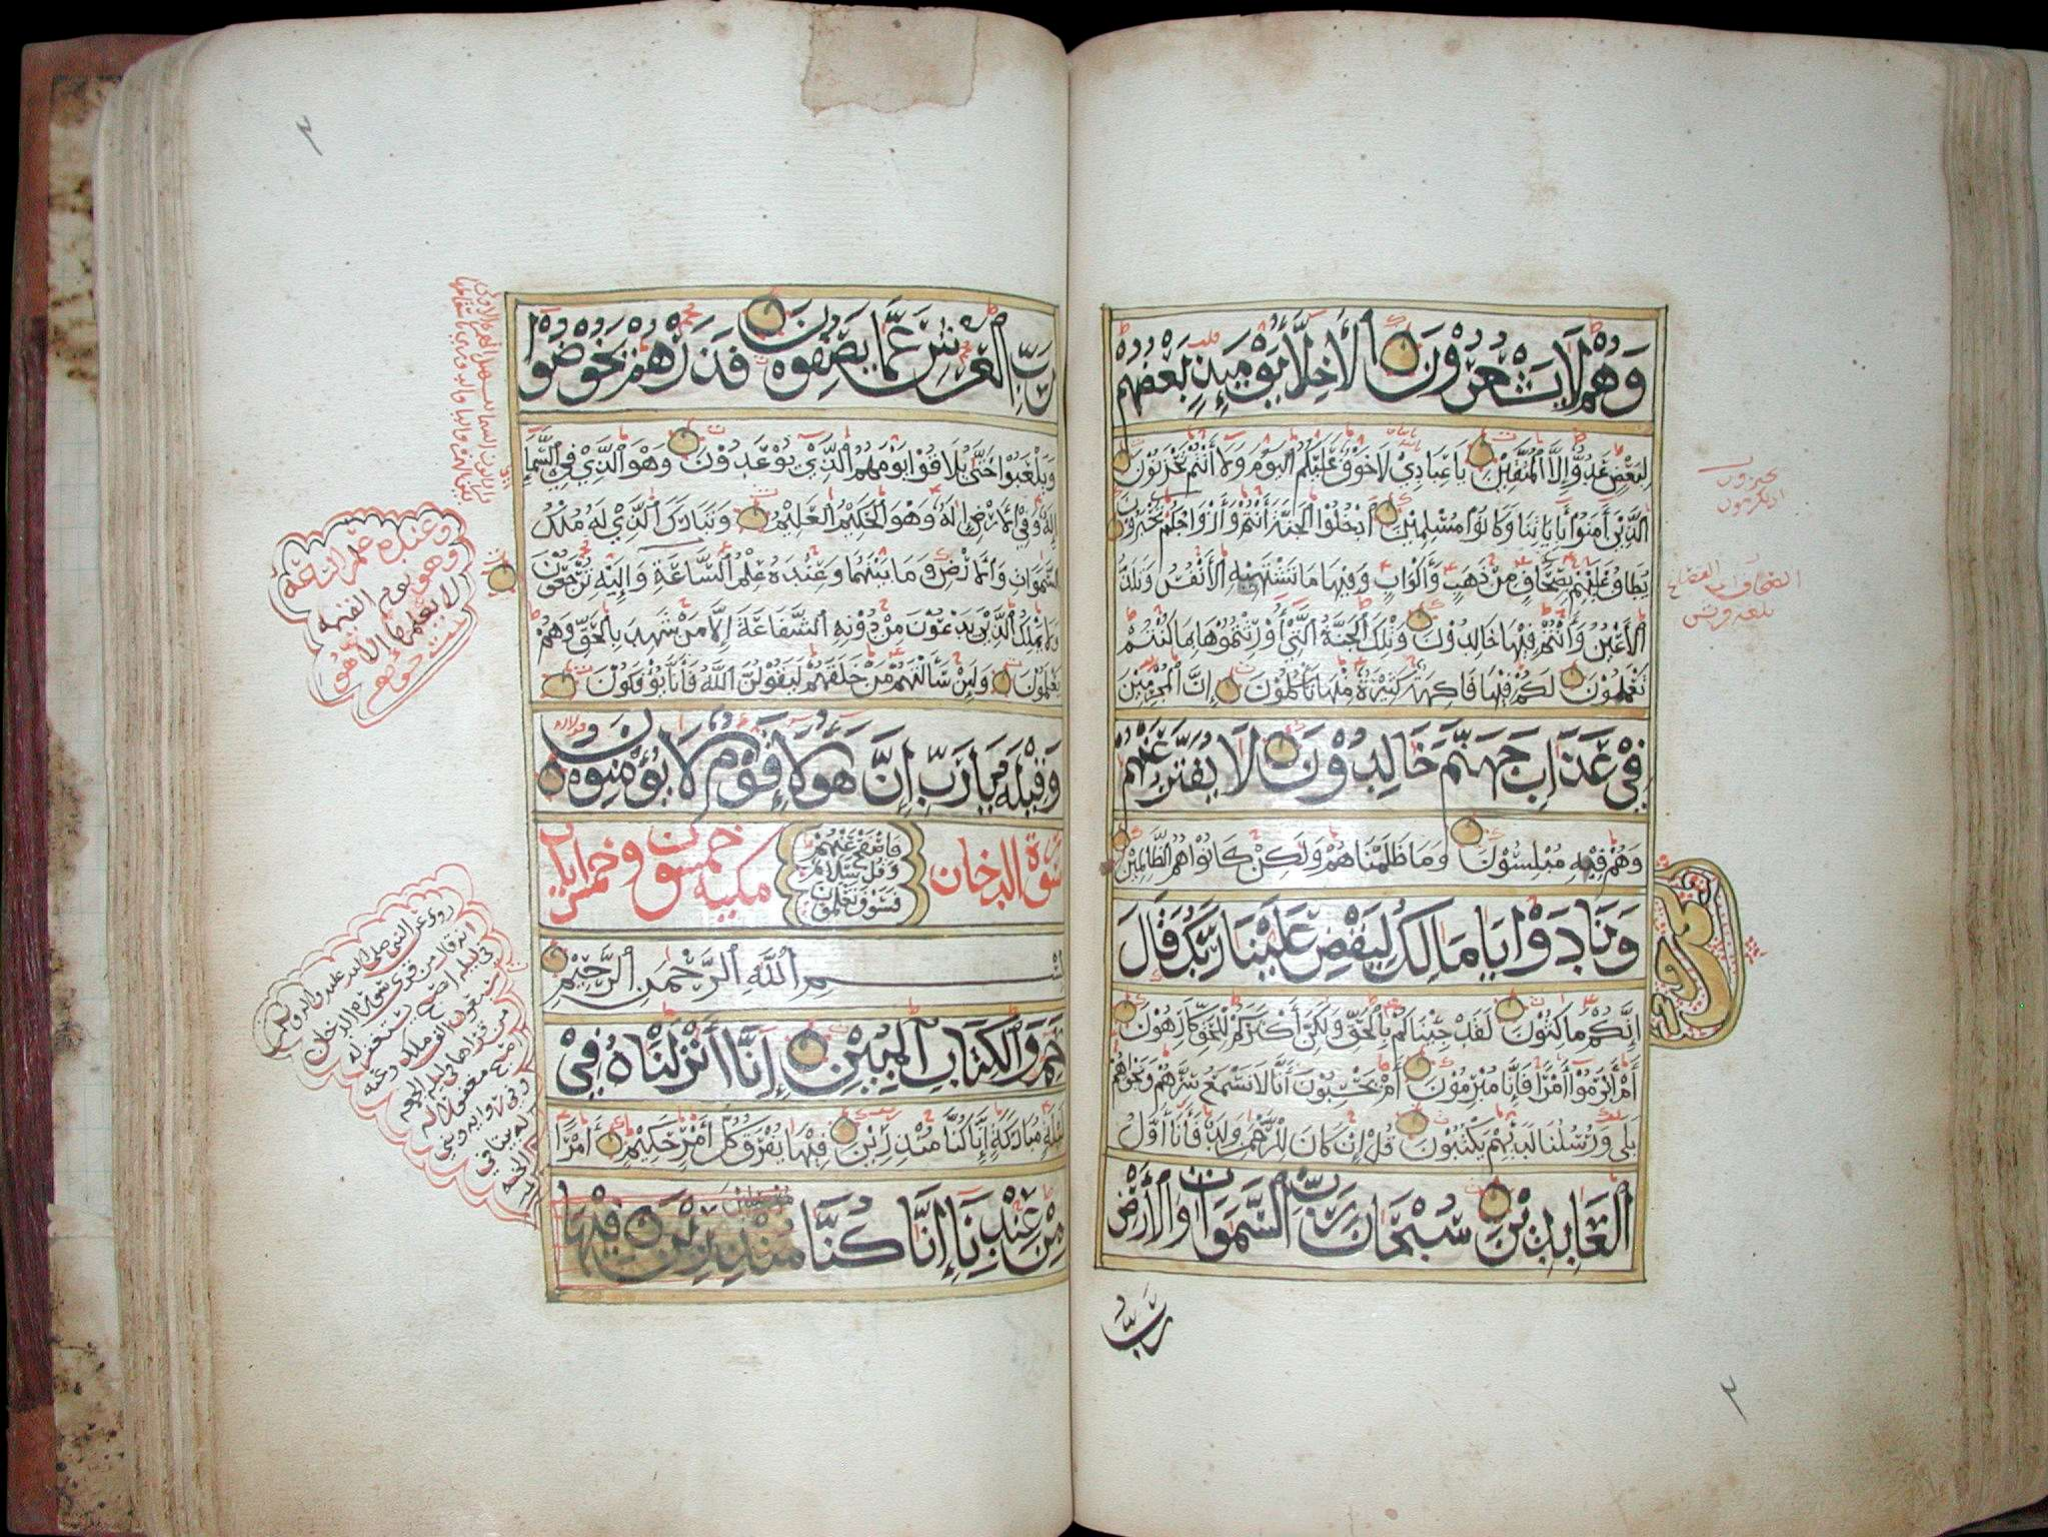 وَهُمْ لَا يَشْعُرُونَ الْأَخِلَّاءُ يَوْمَئِذٍ بَعْضُهُمْ
لِبَعْضٍ عَدُوٌّ إِلَّا الْمُتَّقِينَ يَا عِبَادِي لَا خَوْفٌ عَلَيْكُمُ الْيَوْمَ وَلَا أَنْتُمْ تَحْزَنُونَ
الَّذِينَ آمَنُوا بِآيَاتِنَا وَكَانُوا مُسْلِمِينَ ادْخُلُوا الْجَنَّةَ أَنْتُمْ وَأَزْوَاجُكُمْ تُحْبَرُونَ
يُطَافُ عَلَيْهِمْ بِصِحَافٍ مِنْ ذَهَبٍ وَأَكْوَابٍ وَفِيهَا مَا تَشْتَهِيهِ الْأَنْفُسُ وَتَلَذُّ
الْأَعْيُنُ وَأَنْتُمْ فِيهَا خَالِدُونَ وَتِلْكَ الْجَنَّةُ الَّتِي أُورِثْتُمُوهَا بِمَا كُنْتُمْ
تَعْمَلُونَ لَكُمْ فِيهَا فَاكِهَةٌ كَثِيرَةٌ مِنْهَا تَأْكُلُونَ إِنَّ الْمُجْرِمِينَ
فِي عَذَابِ جَهَنَّمَ خَالِدُونَ لَا يُفَتَّرُ عَنْهُمْ
وَهُمْ فِيهِ مُبْلِسُونَ وَمَا ظَلَمْنَاهُمْ وَلَكِنْ كَانُوا هُمُ الظَّالِمِينَ
وَنَادَوْا يَا مَالِكُ لِيَقْضِ عَلَيْنَا رَبُّكَ قَالَ
إِنَّكُمْ مَاكِثُونَ لَقَدْ جِئْنَاكُمْ بِالْحَقِّ وَلَكِنَّ أَكْثَرَكُمْ لِلْحَقِّ كَارِهُونَ
أَمْ أَبْرَمُوا أَمْرًا فَإِنَّا مُبْرِمُونَ أَمْ يَحْسَبُونَ أَنَّا لَا نَسْمَعُ سِرَّهُمْ وَنَجْوَاهُمْ
بَلَى وَرُسُلُنَا لَدَيْهِمْ يَكْتُبُونَ قُلْ إِنْ كَانَ لِلرَّحْمَنِ وَلَدٌ فَأَنَا أَوَّلُ
الْعَابِدِينَ سُبْحَانَ رَبِّ السَّمَوَاتِ وَالْأَرْضِ
رَبِّ
رَبِّ الْعَرْشِ عَمَّا يَصِفُونَ فَذَرْهُمْ يَخُوضُوا
وَيَلْعَبُوا حَتَّى يُلَاقُوا يَوْمَهُمُ الَّذِي يُوعَدُونَ وَهُوَ الَّذِي فِي السَّمَاءِ
إِلَهٌ وَفِي الْأَرْضِ إِلَهٌ وَهُوَ الْحَكِيمُ الْعَلِيمُ وَتَبَارَكَ الَّذِي لَهُ مُلْكُ
السَّمَوَاتِ وَالْأَرْضِ وَمَا بَيْنَهُمَا وَعِنْدَهُ عِلْمُ السَّاعَةِ وَإِلَيْهِ تُرْجَعُونَ
وَلَا يَمْلِكُ الَّذِينَ يَدْعُونَ مِنْ دُونِهِ الشَّفَاعَةَ إِلَّا مَنْ شَهِدَ بِالْحَقِّ وَهُمْ
يَعْلَمُونَ وَلَئِنْ سَأَلْتَهُمْ مَنْ خَلَقَهُمْ لَيَقُولُنَّ اللَّهُ فَأَنَّى يُؤْفَكُونَ
وَقِيلِهِ يَا رَبِّ إِنَّ هَؤُلَاءِ قَوْمٌ لَا يُؤْمِنُونَ
فَاصْفَحْ عَنْهُمْ
وَقُلْ سَلَامٌ
فَسَوْفَ تَعْلَمُونَ
سورة الدخان مكية خمسون وخمس
بِسْمِ اللَّهِ الرَّحْمَنِ الرَّحِيمِ
حم وَالْكِتَابِ الْمُبِينِ إِنَّا أَنْزَلْنَاهُ فِي
لَيْلَةٍ مُبَارَكَةٍ إِنَّا كُنَّا مُنْذِرِينَ فِيهَا يُفْرَقُ كُلُّ أَمْرٍ حَكِيمٍ أَمْرًا
مِنْ عِنْدِنَا إِنَّا كُنَّا مُنْذِرِينَ فِيهَا
مُرْسِلِينَ
وعنده علم الساعة
وهو يوم القيمة
لا يعلمها الا هو
روي عن النبي صلى الله عليه وآله وسلم
انه قال من قرى سورة الدخان